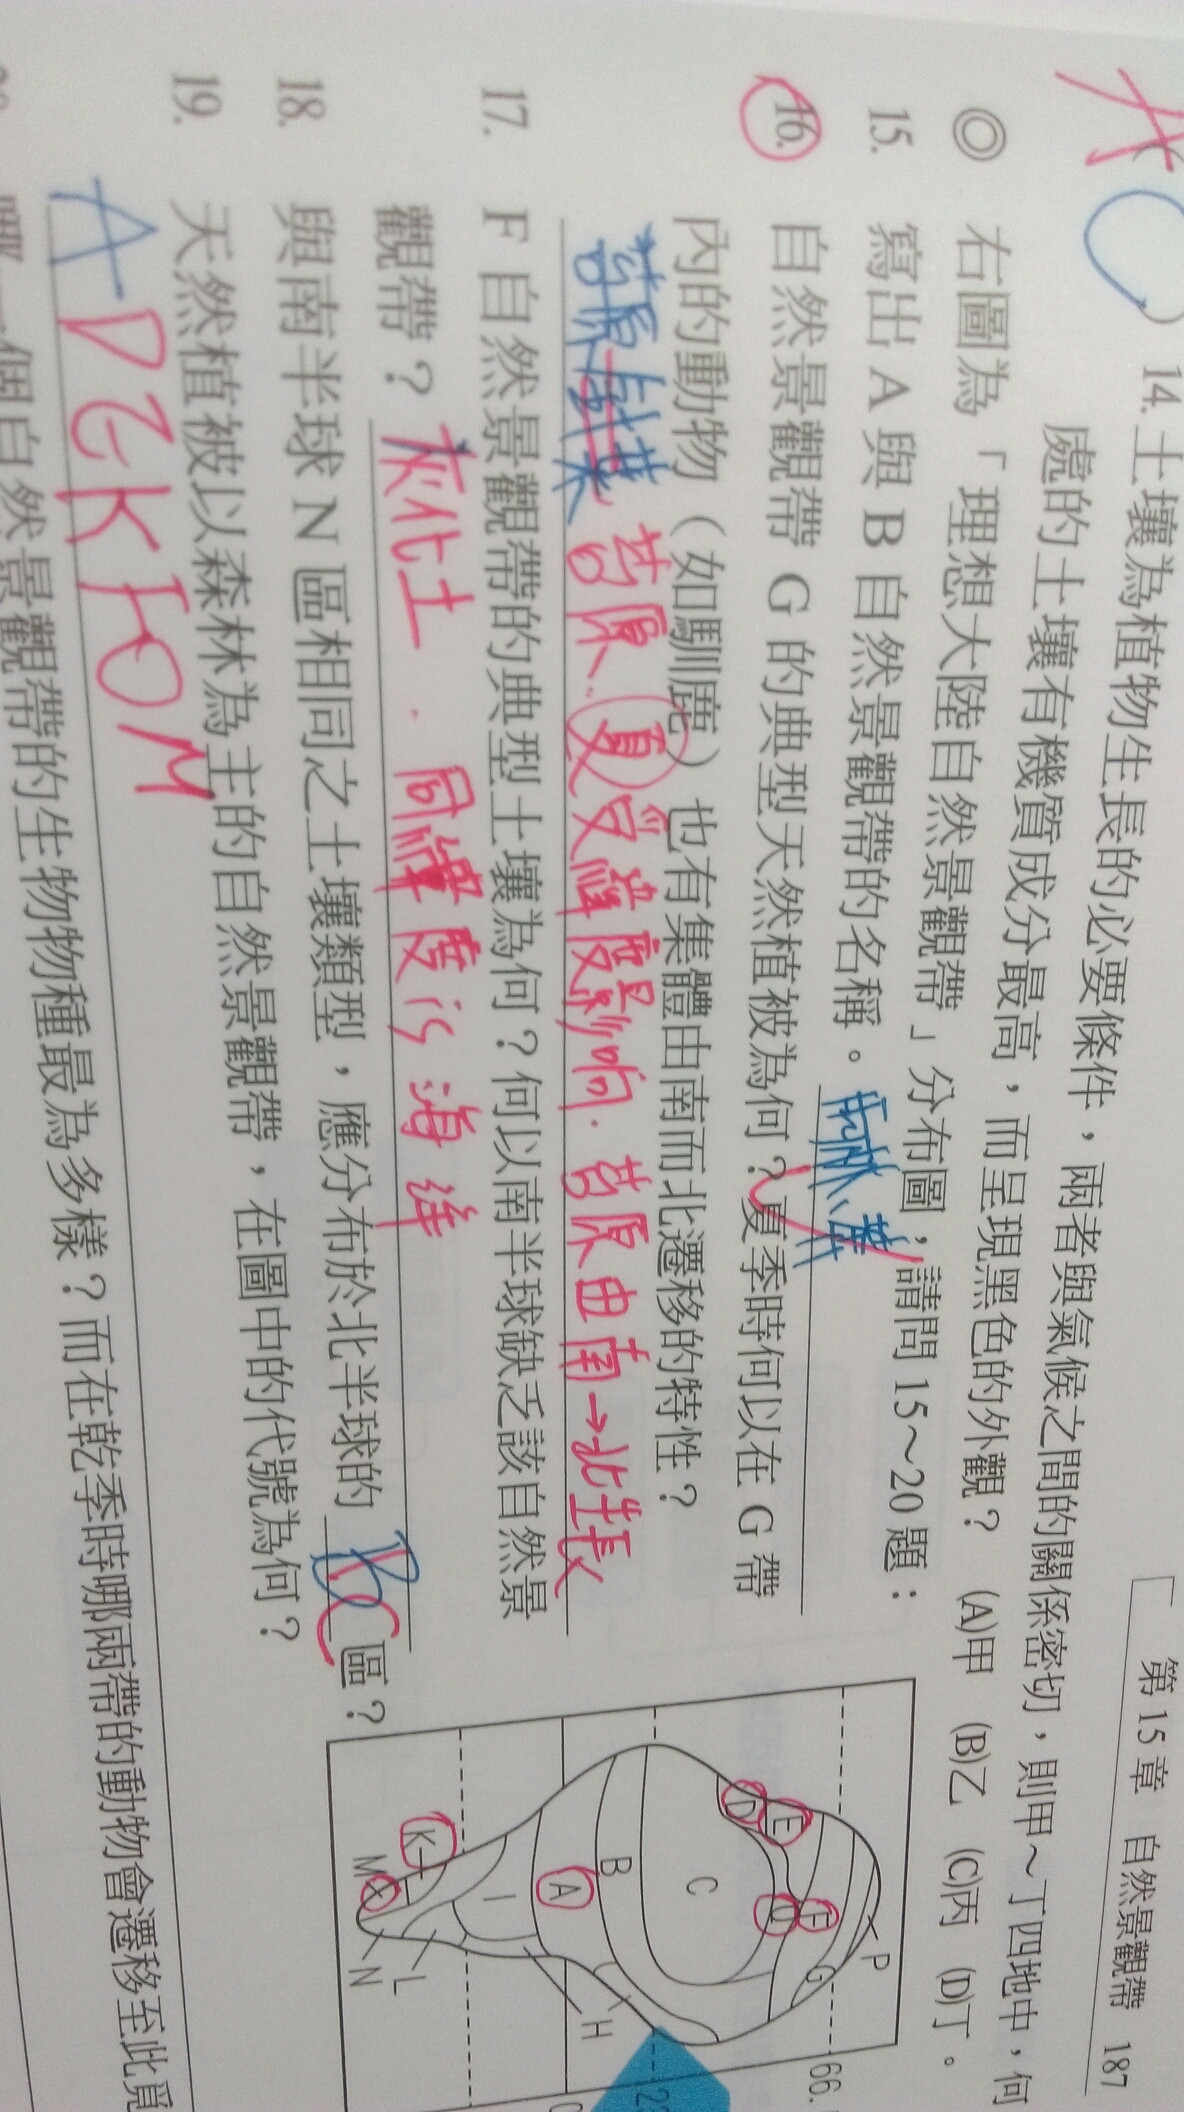 第 15 章　自然景觀帶　187
A
C）14. 土壤為植物生長的必要條件，兩者與氣候之間的關係密切，則甲～丁四地中，何
處的土壤有機質成分最高，而呈現黑色的外觀？　(A)甲　(B)乙　(C)丙　(D)丁。
◎　右圖為「理想大陸自然景觀帶」分布圖，請問 15～20 題：
15.　寫出 A 與 B 自然景觀帶的名稱。雨林、莽
16.　自然景觀帶 G 的典型天然植被為何？夏季時何以在 G 帶
內的動物（如馴鹿）也有集體由南而北遷移的特性？
苔原 苔原．夏受緯度影响．苔原由南→北生長
17.　F 自然景觀帶的典型土壤為何？何以南半球缺乏該自然景
觀帶？灰化土．同緯度is 海洋
18.　與南半球 N 區相同之土壤類型，應分布於北半球的 C 區？
19.　天然植被以森林為主的自然景觀帶，在圖中的代號為何？
A D E K F O M
哪一個自然景觀帶的生物物種最為多樣？而在乾季時哪兩帶的動物會遷移至此覓
P
66.
G
F
E
D
O
C
B
A
H
I
K
L
M
N
0